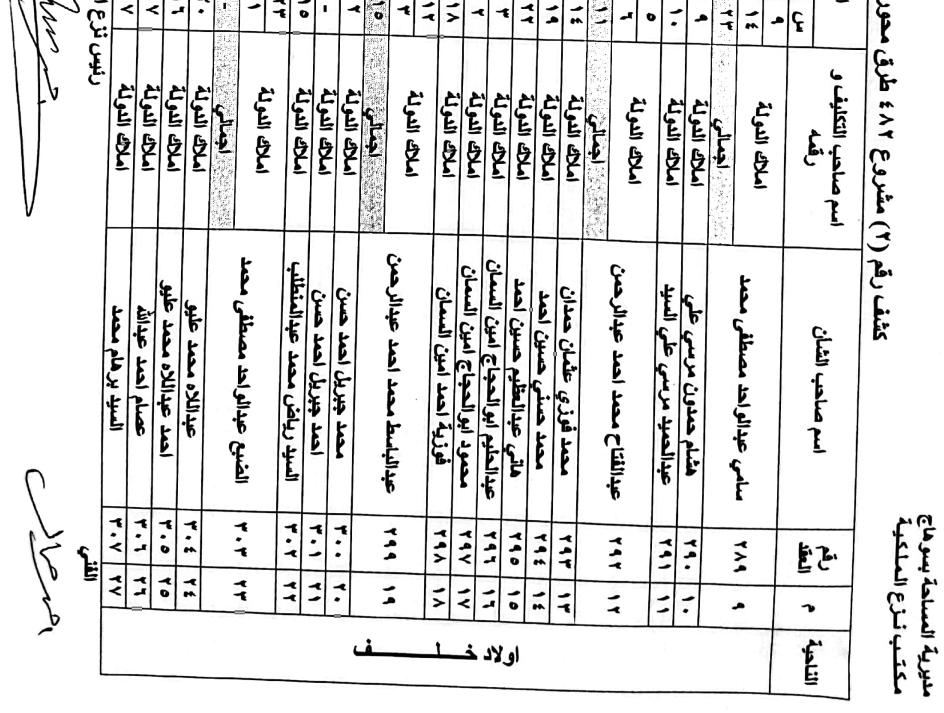 مديرية المساحة بسوهاج
مكتب نزع الملكية
كشف رقم (٢) مشروع ٤٨٢ طرق محور
الناحية م رقم العقد اسم صاحب الشأن اسم صاحب التكليف و رقمه س
اولاد خلف
٩ ٢٨٩ سامي عبدالواحد مصطفى محمد املاك الدولة ٩
١٤
اجمالي ٢٣
١٠ ٢٩٠ هشام حمدون مرسي علي املاك الدولة ٩
١١ ٢٩١ عبدالحميد مرسي علي السيد املاك الدولة ١٠
١٢ ٢٩٢ عبدالفتاح محمد احمد عبدالرحمن املاك الدولة ٥
٦
اجمالي ١١
١٣ ٢٩٣ محمد فوزي عثمان حمدان املاك الدولة ١٤
١٤ ٢٩٤ محمد حسني حسين احمد املاك الدولة ١٩
١٥ ٢٩٥ هاني عبدالعظيم حسين احمد املاك الدولة ٢٢
١٦ ٢٩٦ عبدالحليم ابوالحجاج امين السمان املاك الدولة ٣
١٧ ٢٩٧ محمود ابوالحجاج امين السمان املاك الدولة ٢
١٨ ٢٩٨ فوزية احمد امين السمان املاك الدولة ١٨
١٩ ٢٩٩ عبدالباسط محمد احمد عبدالرحمن املاك الدولة ١٢
٣
اجمالي ١٥
٢٠ ٣٠٠ محمد جبريل احمد حسن املاك الدولة ٢
٢١ ٣٠١ احمد جبريل احمد حسن املاك الدولة -
٢٢ ٣٠٢ السيد رياض محمد عبدالمطلب املاك الدولة ١٥
٢٣ ٣٠٣ الضبع عبدالواحد مصطفى محمد املاك الدولة ٢٣
١
اجمالي -
٢٤ ٣٠٤ عبداللاه محمد عليو املاك الدولة ٢٠
٢٥ ٣٠٥ احمد عبداللاه محمد عليو املاك الدولة ١٦
٢٦ ٣٠٦ عصام احمد عبدالله املاك الدولة ٧
٢٧ ٣٠٧ السيد برهام محمد املاك الدولة ٧
الفني رئيس نزع